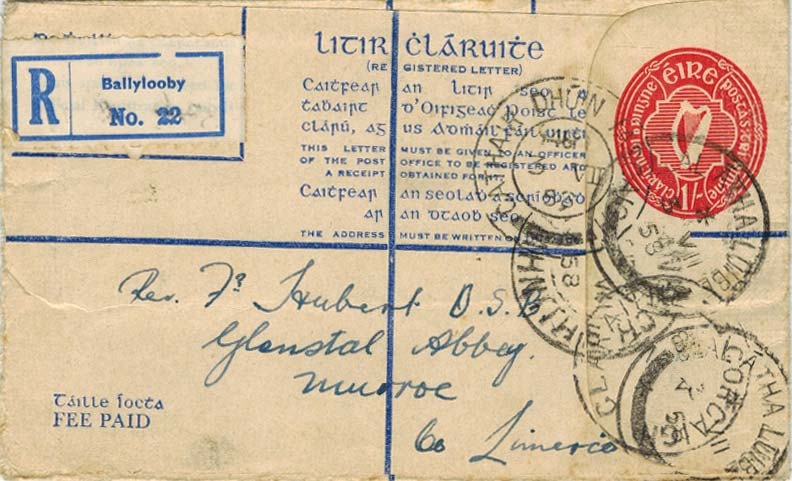 LITIR CLÁRUITHE
(REGISTERED LETTER)
Caitfear an litir seo a
tabairt d'Oifigeac Poist le
clárú, ag us Admáil fáil uirti
THIS LETTER MUST BE GIVEN TO AN OFFICER
OF THE POST OFFICE TO BE REGISTERED AND
A RECEIPT OBTAINED FOR IT.
Caitfear an seolad a scríobad
ar an dtaob seo
THE ADDRESS MUST BE WRITTEN ON
R
Ballylooby
No. 22
ÉIRE
POSTAS
1/-
Rev. Fr Hubert O.S.B
Glenstal Abbey
Murroe
Co Limerick
Táille íocta
FEE PAID
CATHAIR DHÚIN
58
CORCAIGH
58